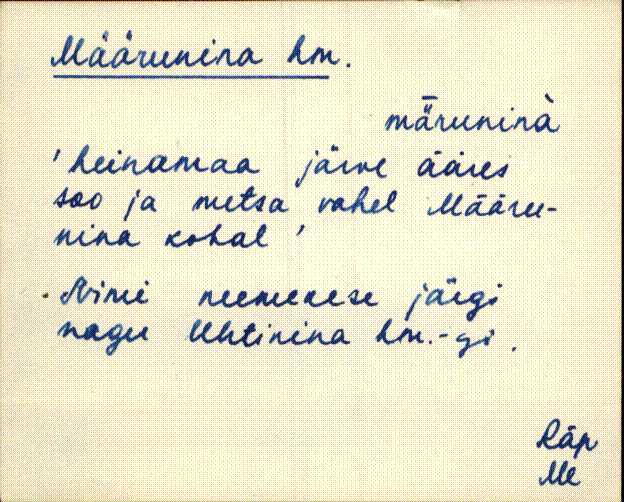 Määrunina hm.
mā̈runinà
'heinamaa järve ääres
soo ja metsa vahel Määru-
nina kohal'
Nimi neemekese järgi
nagu Uhtinina hm.-gi.
Räp
Me